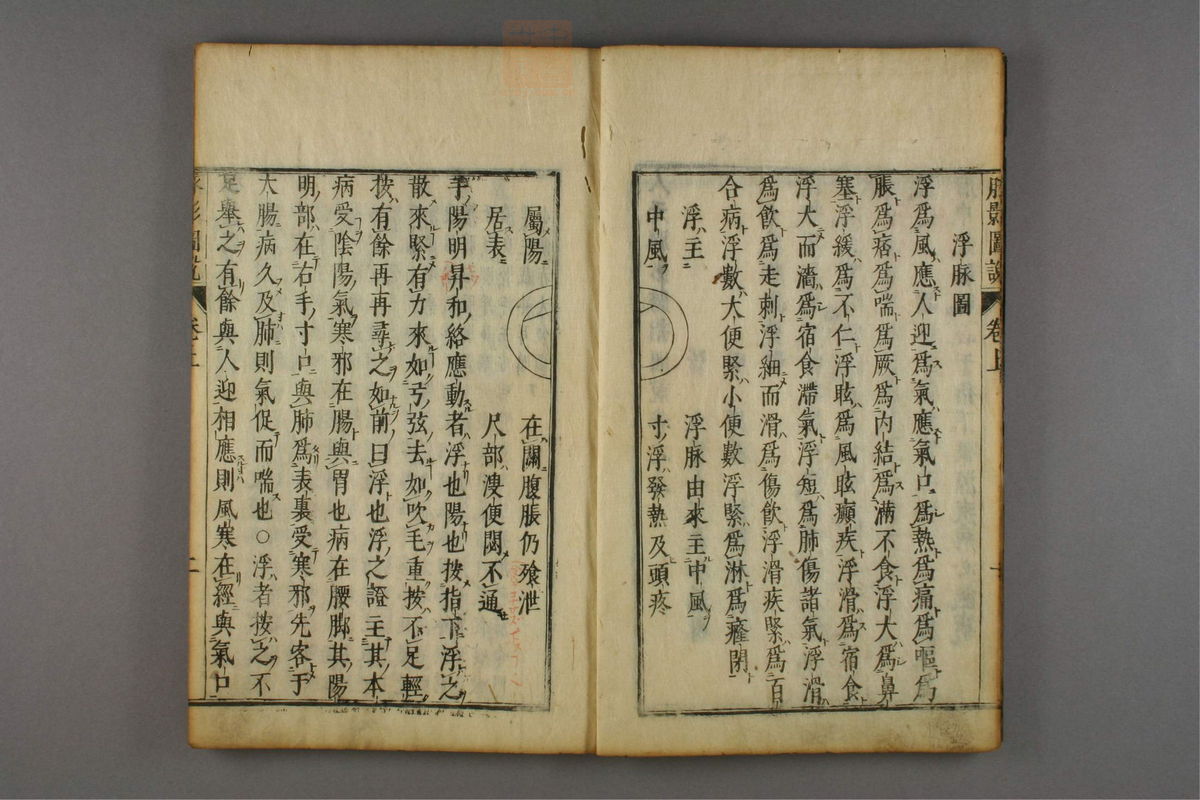 脉影圖說 卷上
浮脉圖
浮爲風應人迎爲氣應氣口爲熱爲痛爲嘔爲
脹爲痞爲喘爲厥爲內結爲滿不食浮大爲鼻
塞浮緩爲不仁浮眩爲風眩癲疾浮滑爲宿食
浮大而濇爲宿食滯氣浮短爲肺傷諸氣浮滑
爲飲爲走刺浮細而滑爲傷飲浮滑疾緊爲百
合病浮數大便緊小便數浮緊爲淋爲癃閉
浮主 浮脉由來主中風
中風 寸浮發熱及頭疼
屬陽 在關腹脹仍飱泄
居表 尺部溲便閟不通
手陽明昇和絡應動者浮也陽也按指下浮之
散來緊有力來如弓弦去如吹毛重按不足輕
按有餘再再尋之如前曰浮也浮之證主其本
病受陰陽氣寒邪在腸與胃也病在腰脚其陽
明部在右手寸口與肺爲表裏受寒邪先客于
大腸病久及肺則氣促而喘也○浮者按之不
足舉之有餘與人迎相應則風寒在經與氣口